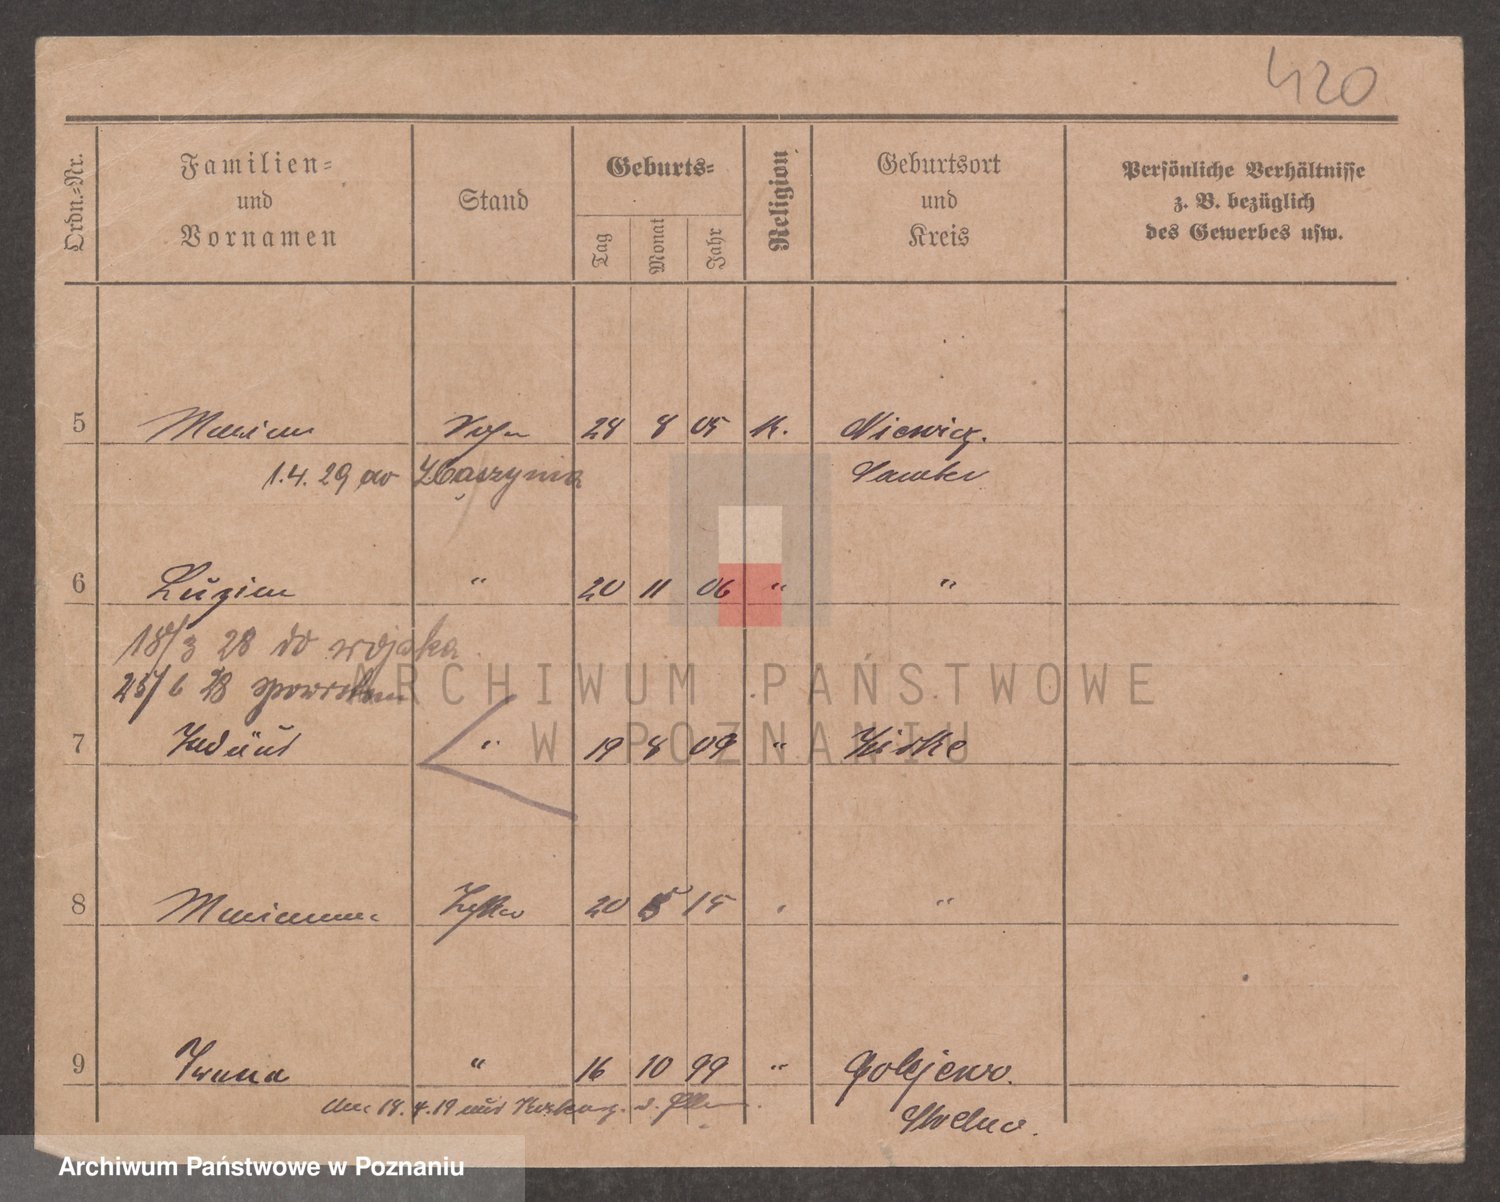 420
Ordn.-Nr.
Familien-
und
Vornamen
Stand
Geburts-
Tag
Monat
Jahr
Religion
Geburtsort
und
Kreis
Persönliche Verhältnisse
z. B. bezüglich
des Gewerbes usw.
5 Marian Sohn 28 8 05 K. Niewierz.
1.4.29 do Zbąszynia Samter
6 Luzian " 20 11 06 " "
18/3 28 do wojska
25/6 28 spowrotem
ARCHIWUM PAŃSTWOWE
W POZNANIU
7 " 19 8 09 " Zirke
8 Marianna Tochter 20 5 15 " "
9 Irena " 16 10 99 " Golejewo.
18.4.19 aus
Archiwum Państwowe w Poznaniu